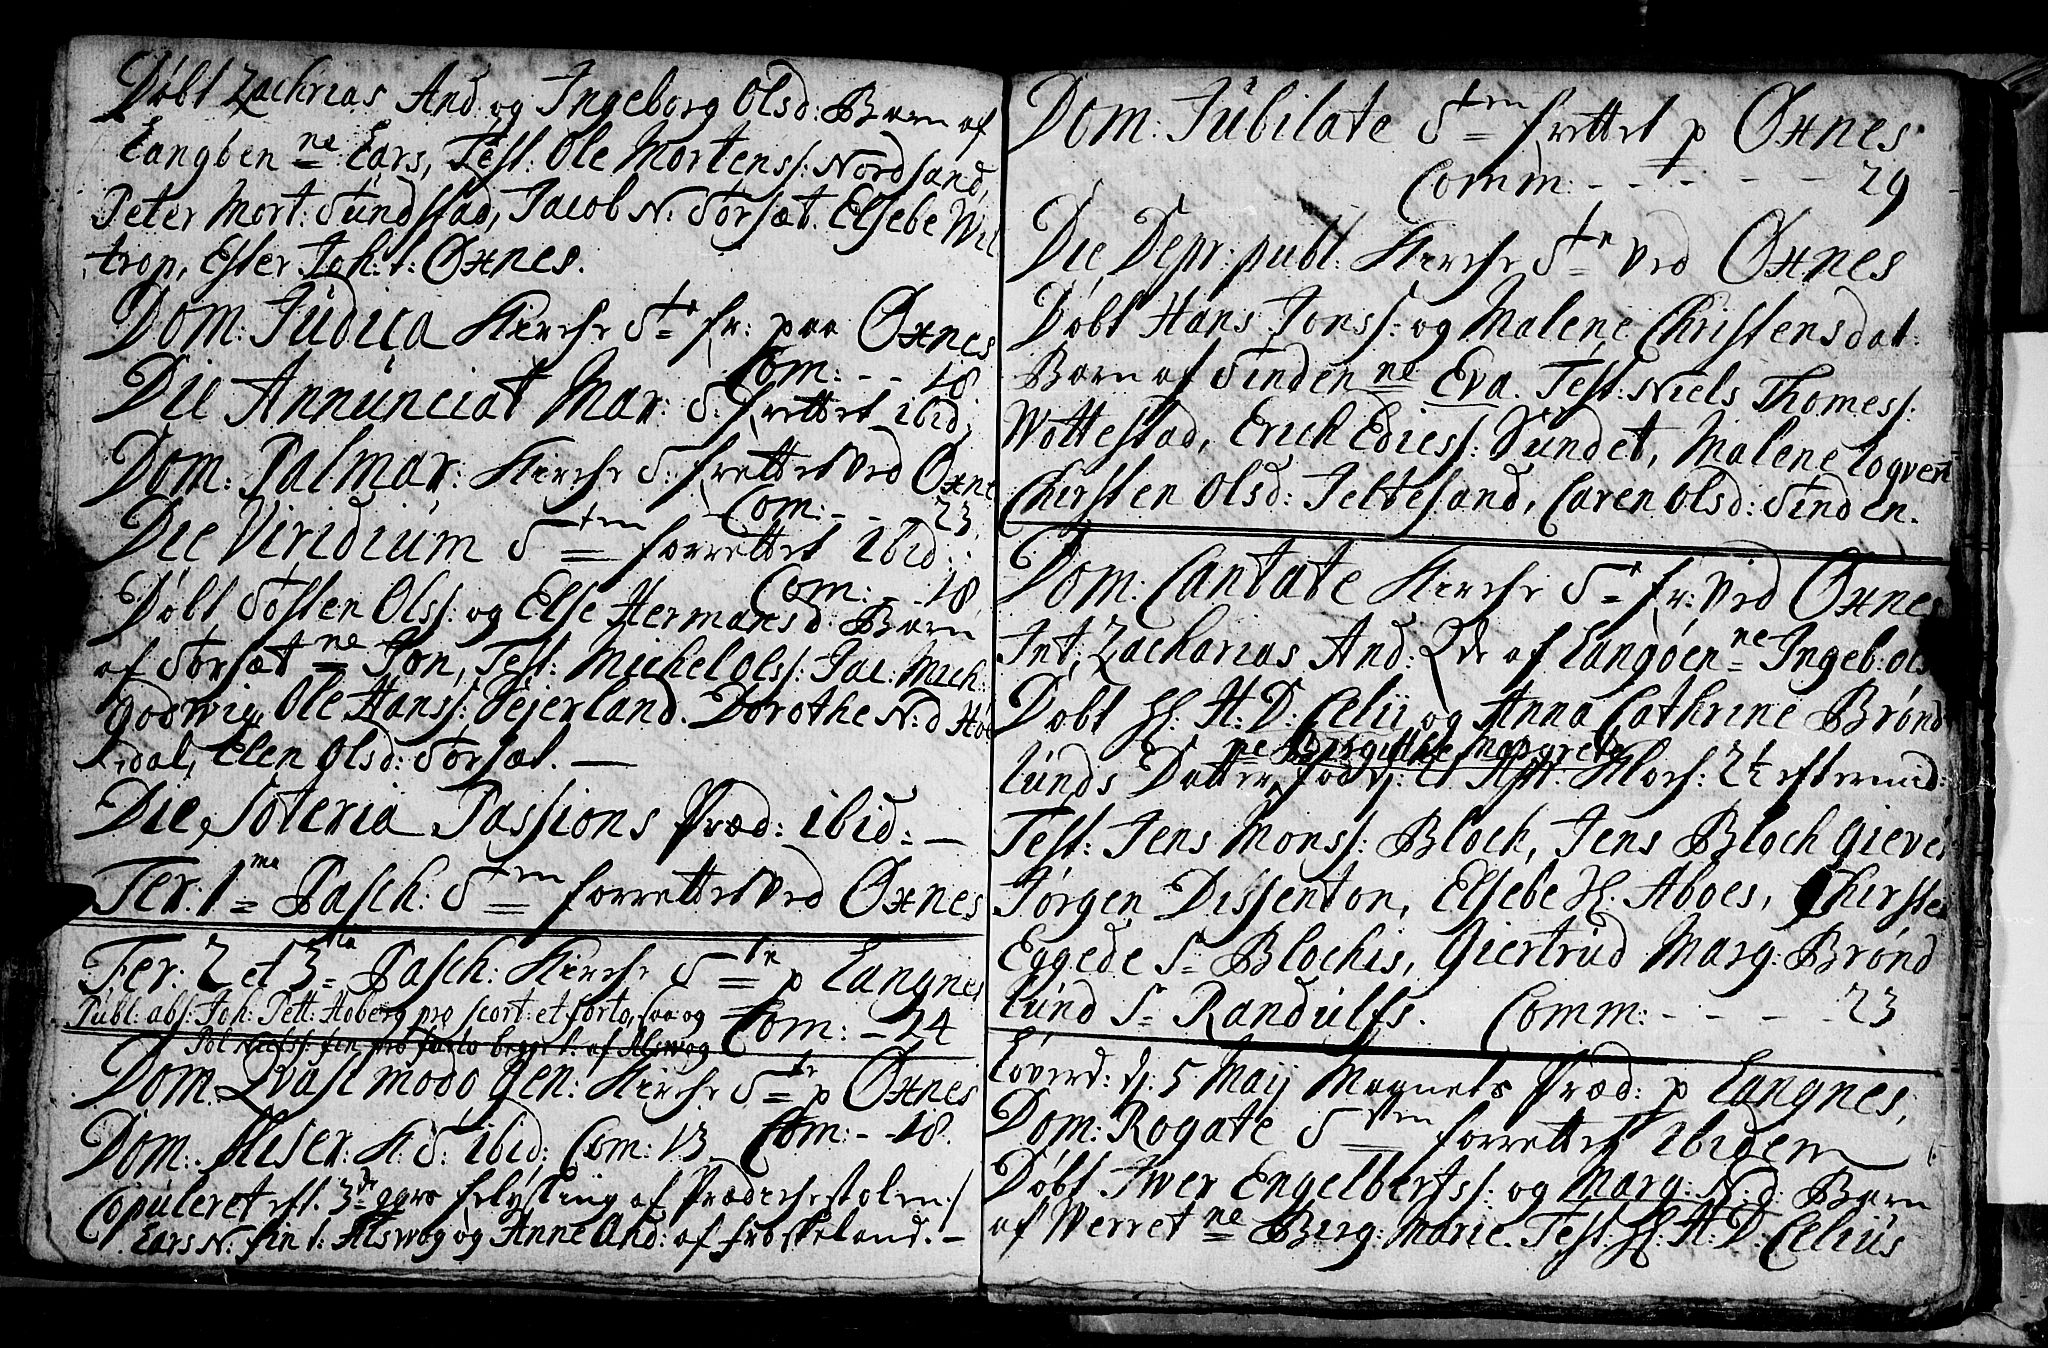 Døbt Zachrias And: og Ingeborg Olsd: Barn af
Langøen ne Lars, Test: Ole Mortenss: Nordsand,
Peter Mort: Sundstad, Jacob N: Sorsæt. Elsebe Wil
trop, Ester Joh: t: Øxnes.
Dom: Judica Kirche Ste fr: paa Øxnes
Com: - - 18.
Die Annunciat Mar: S: frettet ibid:
Dom: Palmar: Kirche S: frettet ved Øxne
Com: - - 23
Die Viridium Sten forrettet ibid:
Com: - - 18
Døbt Søften Olss: og Else Hermansd: Barn
af Sorsæt ne Jon, Test: Michel Olss: Jac: Mich:
Godwig, Ole Hanss: Sejerland. Dorothe N:d Høi
dal, Elen Olsd: Sorsæt. —
Die Soteria Passions Præd: ibid: —
Fer: 1 ma Pasch: Sten forrettet ved Øxnes
Fer: 2 et 3 tia Pasch: Kirche Ste p Langnes
Publ: abs: Joh: Pett: Hoberg pro scort: et furto, saa og
Com: - 24
Pol Nielss: fin pro furto begge t: af Alswog
Dom. Qvasi modo gen: Kirche Ste p Øxnes
Com: - - 18.
Dom: Miser: K: S: ibid: Com: 13.
Copuleret eft. 3de ggrs felysting af Prædichestolen:/
Lars N: fin t: Alswog og Anne And: af Froskeland. —
Dom: Jubilate Sten frettet p Øxnes
Comm: - - - - - 29
Die Depr: publ: Kirche Ste ved Øxnes
Døbt Hans Jonss: og Malene Christensdat:
Barn af Sinden ne Eva. Test: Niels Thomess:
Wottestad, Erich Ediess: Sundet, Malene Toqvent
Chirsten Olsd: Jeltesand, Caren Olsd: Sinden.
Dom: Cantate Kirche Ste fr: ved Øxnes
Int: Zacharias And: Qde af Langøen ne Ingeb: Ols
Døbt Hl: H: D: Celii og Anna Cathrine Brønd
ne Abergitthe Margrete
lunds Datter, fød dj: 21 Apr: Kloch: 2½ eftermid:
Test: Jens Monss: Bloch, Jens Bloch Giever
Jørgen Dissenton, Elsebe Hl: Aboes, Chirsten
Eggede S= Blochis, Giertrud Marg: Brønd
lund S= Randulfs. Comm: - - - - 23
Løverd: dj: 5 Maij Magnets Præd: p Langnes,
Dom: Rogate Sten forrettet ibidem
Døbt Iwer Engelbertss: og Marg: N:d: Barn
af Werret ne Berg: Marie. Test: Hl: H: D: Celius